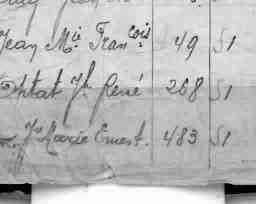 Jean Mie Francois 49 S1
Optat Jh René 268 S1
Jh Marie Ernest. 483 S1